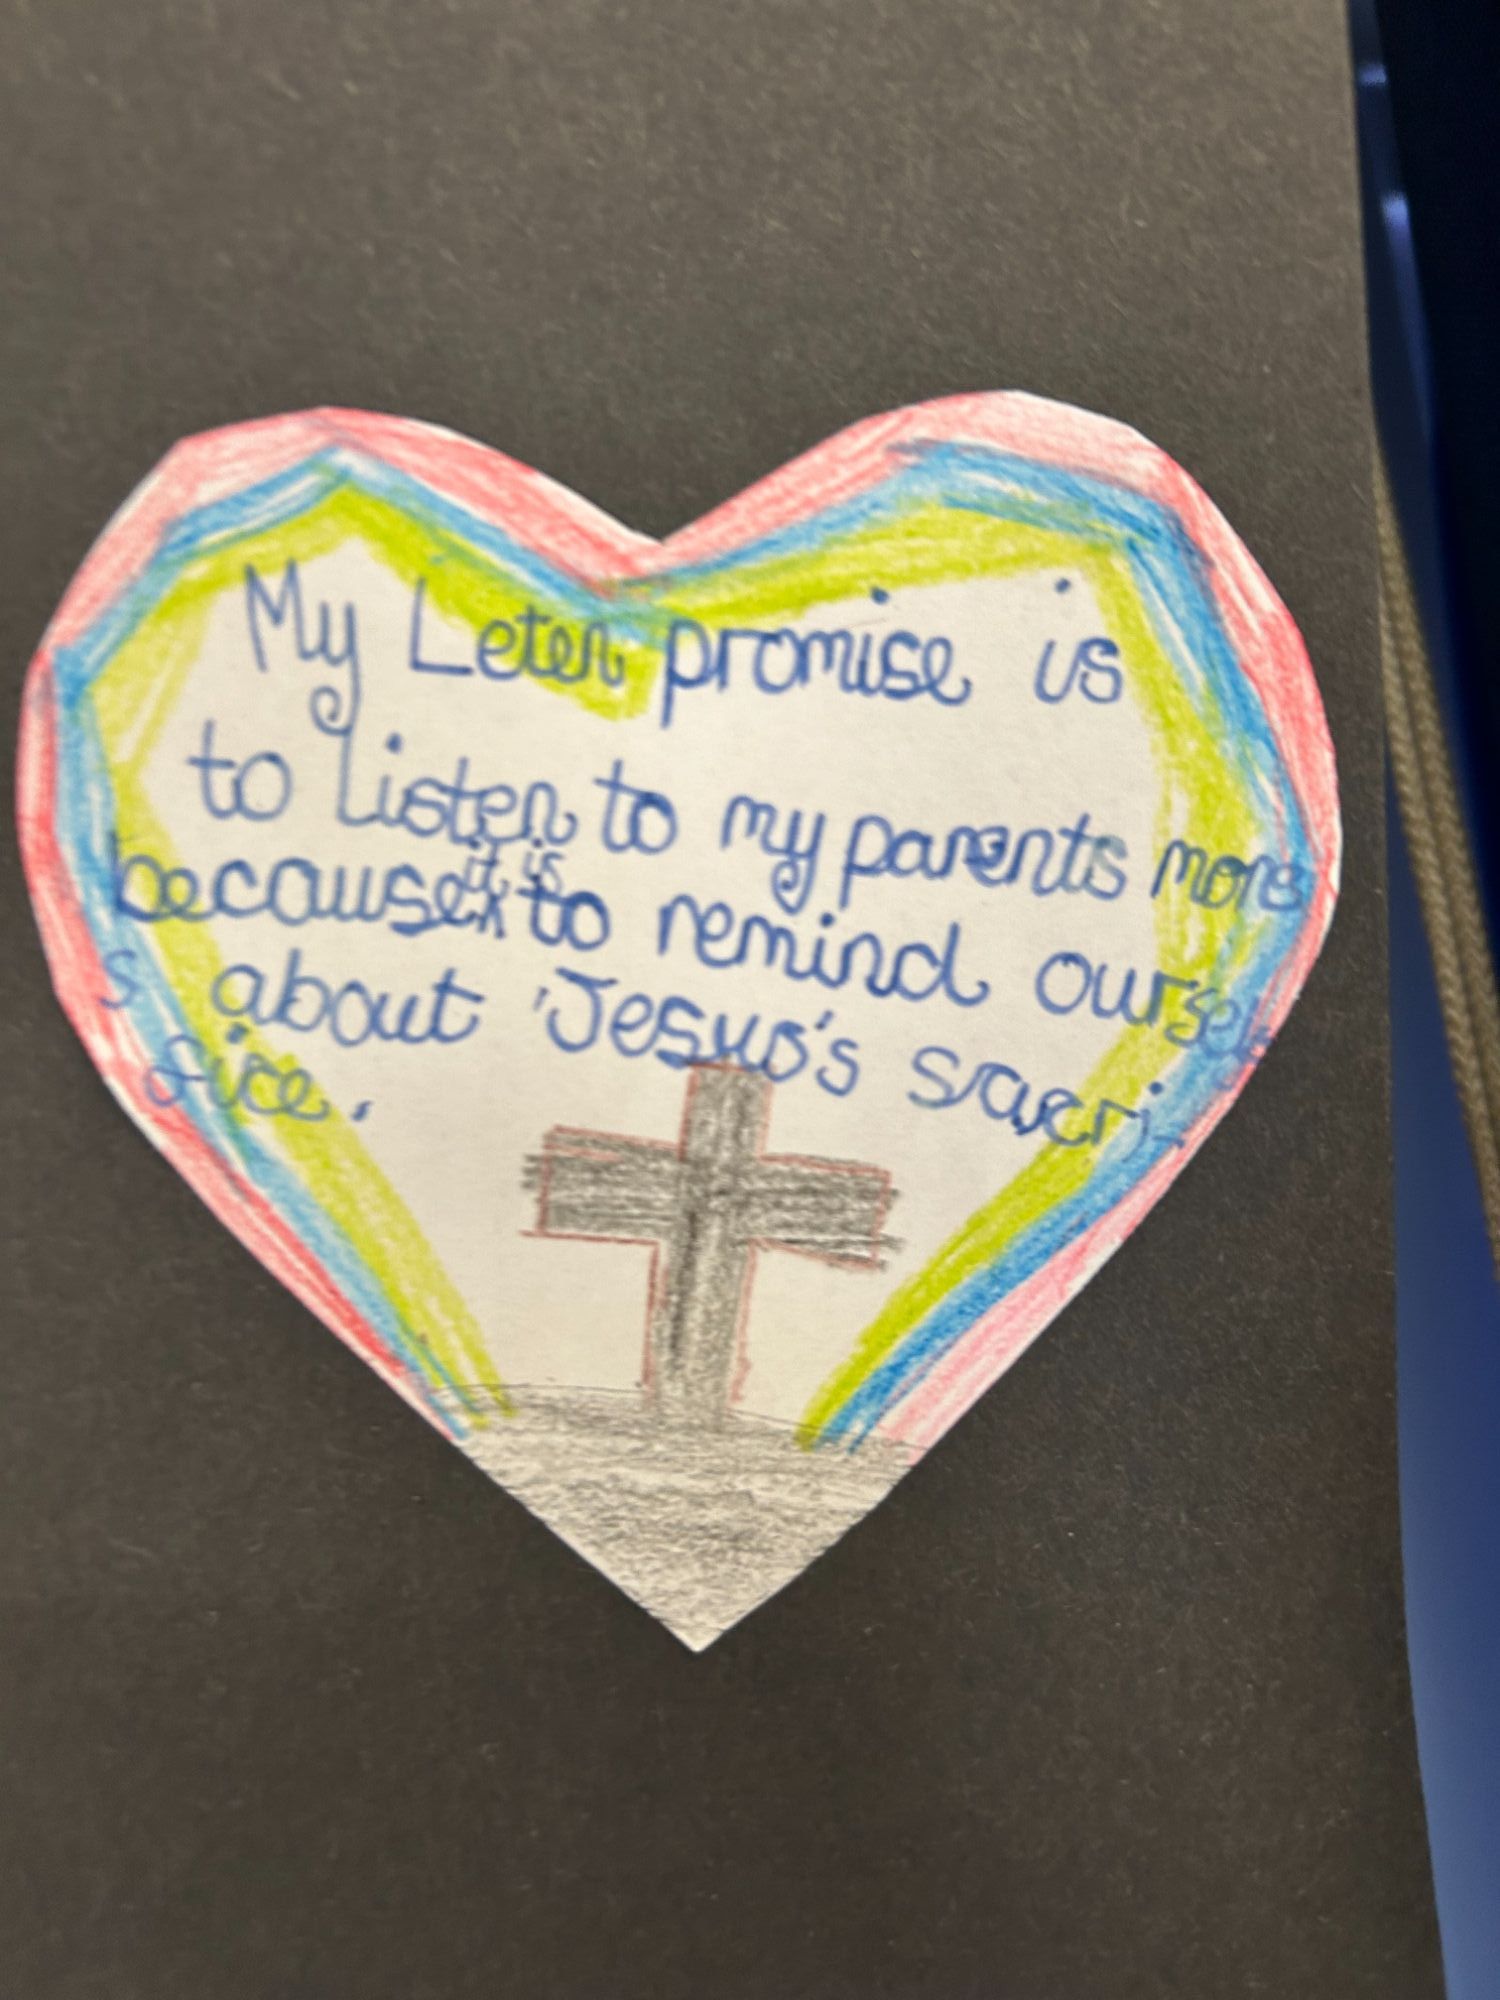 My Leten promise is
to listen to my parents more
because it is to remind oursel
s about Jesus's sacri-
fice.